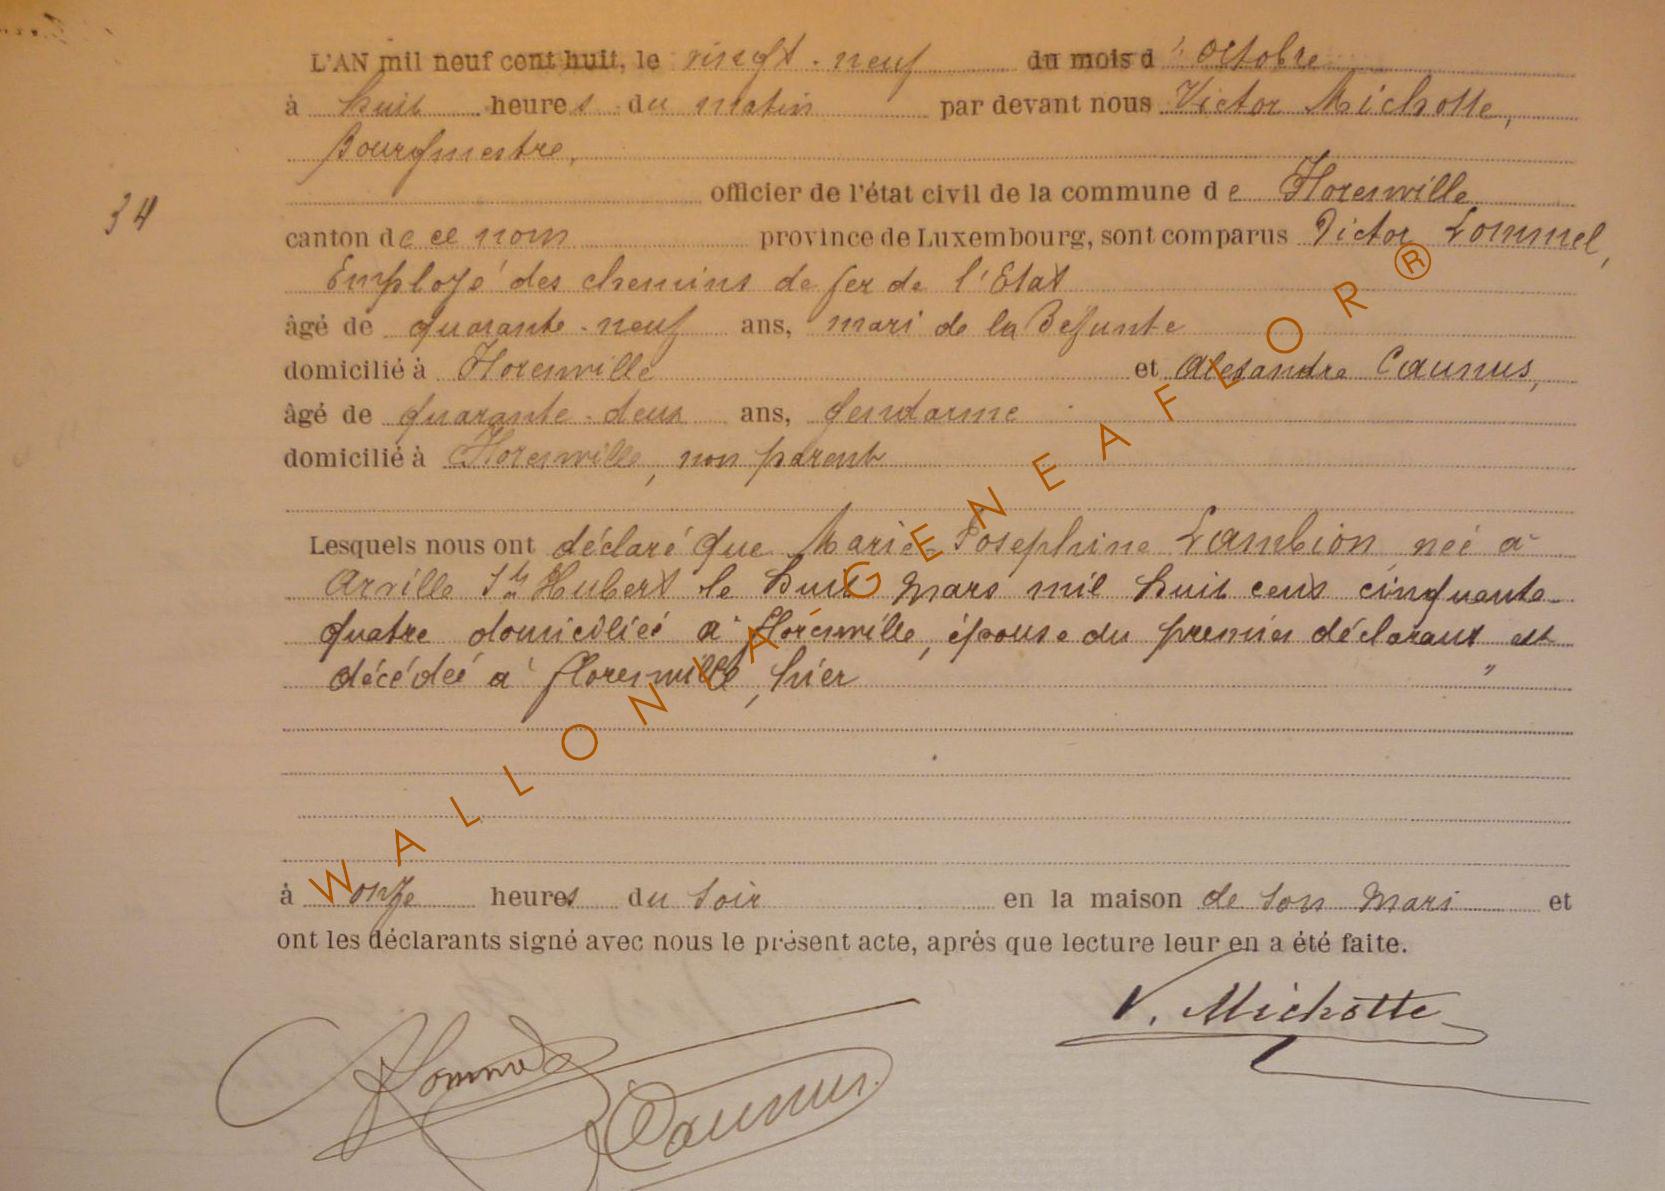 L'AN mil neuf cent huit, le vingt-neuf du mois d'octobre
à huit heures du matin par devant nous Victor Michotte,
Bourgmestre,
officier de l'état civil de la commune de Florenville
34
canton de ce nom province de Luxembourg, sont comparus Victor Lommel,
Employé des chemins de fer de l'Etat
âgé de quarante-neuf ans, mari de la Défunte
domicilié à Florenville et Alexandre Caunus,
âgé de quarante-deux ans, gendarme
domicilié à Florenville, non parent
Lesquels nous ont déclaré que Marie-Josephine Lambion, née à
Arville Hubert le huit Mars mil huit cent cinquante-
quatre domiciliée à Florenville, épouse du premier déclarant est
décédée à florenville, hier "
à onze heures du soir en la maison de son Mari et
ont les déclarants signé avec nous le présent acte, après que lecture leur en a été faite.
V. Michotte
Lommel
Caunus
WALLONIA GENEAFLOR®